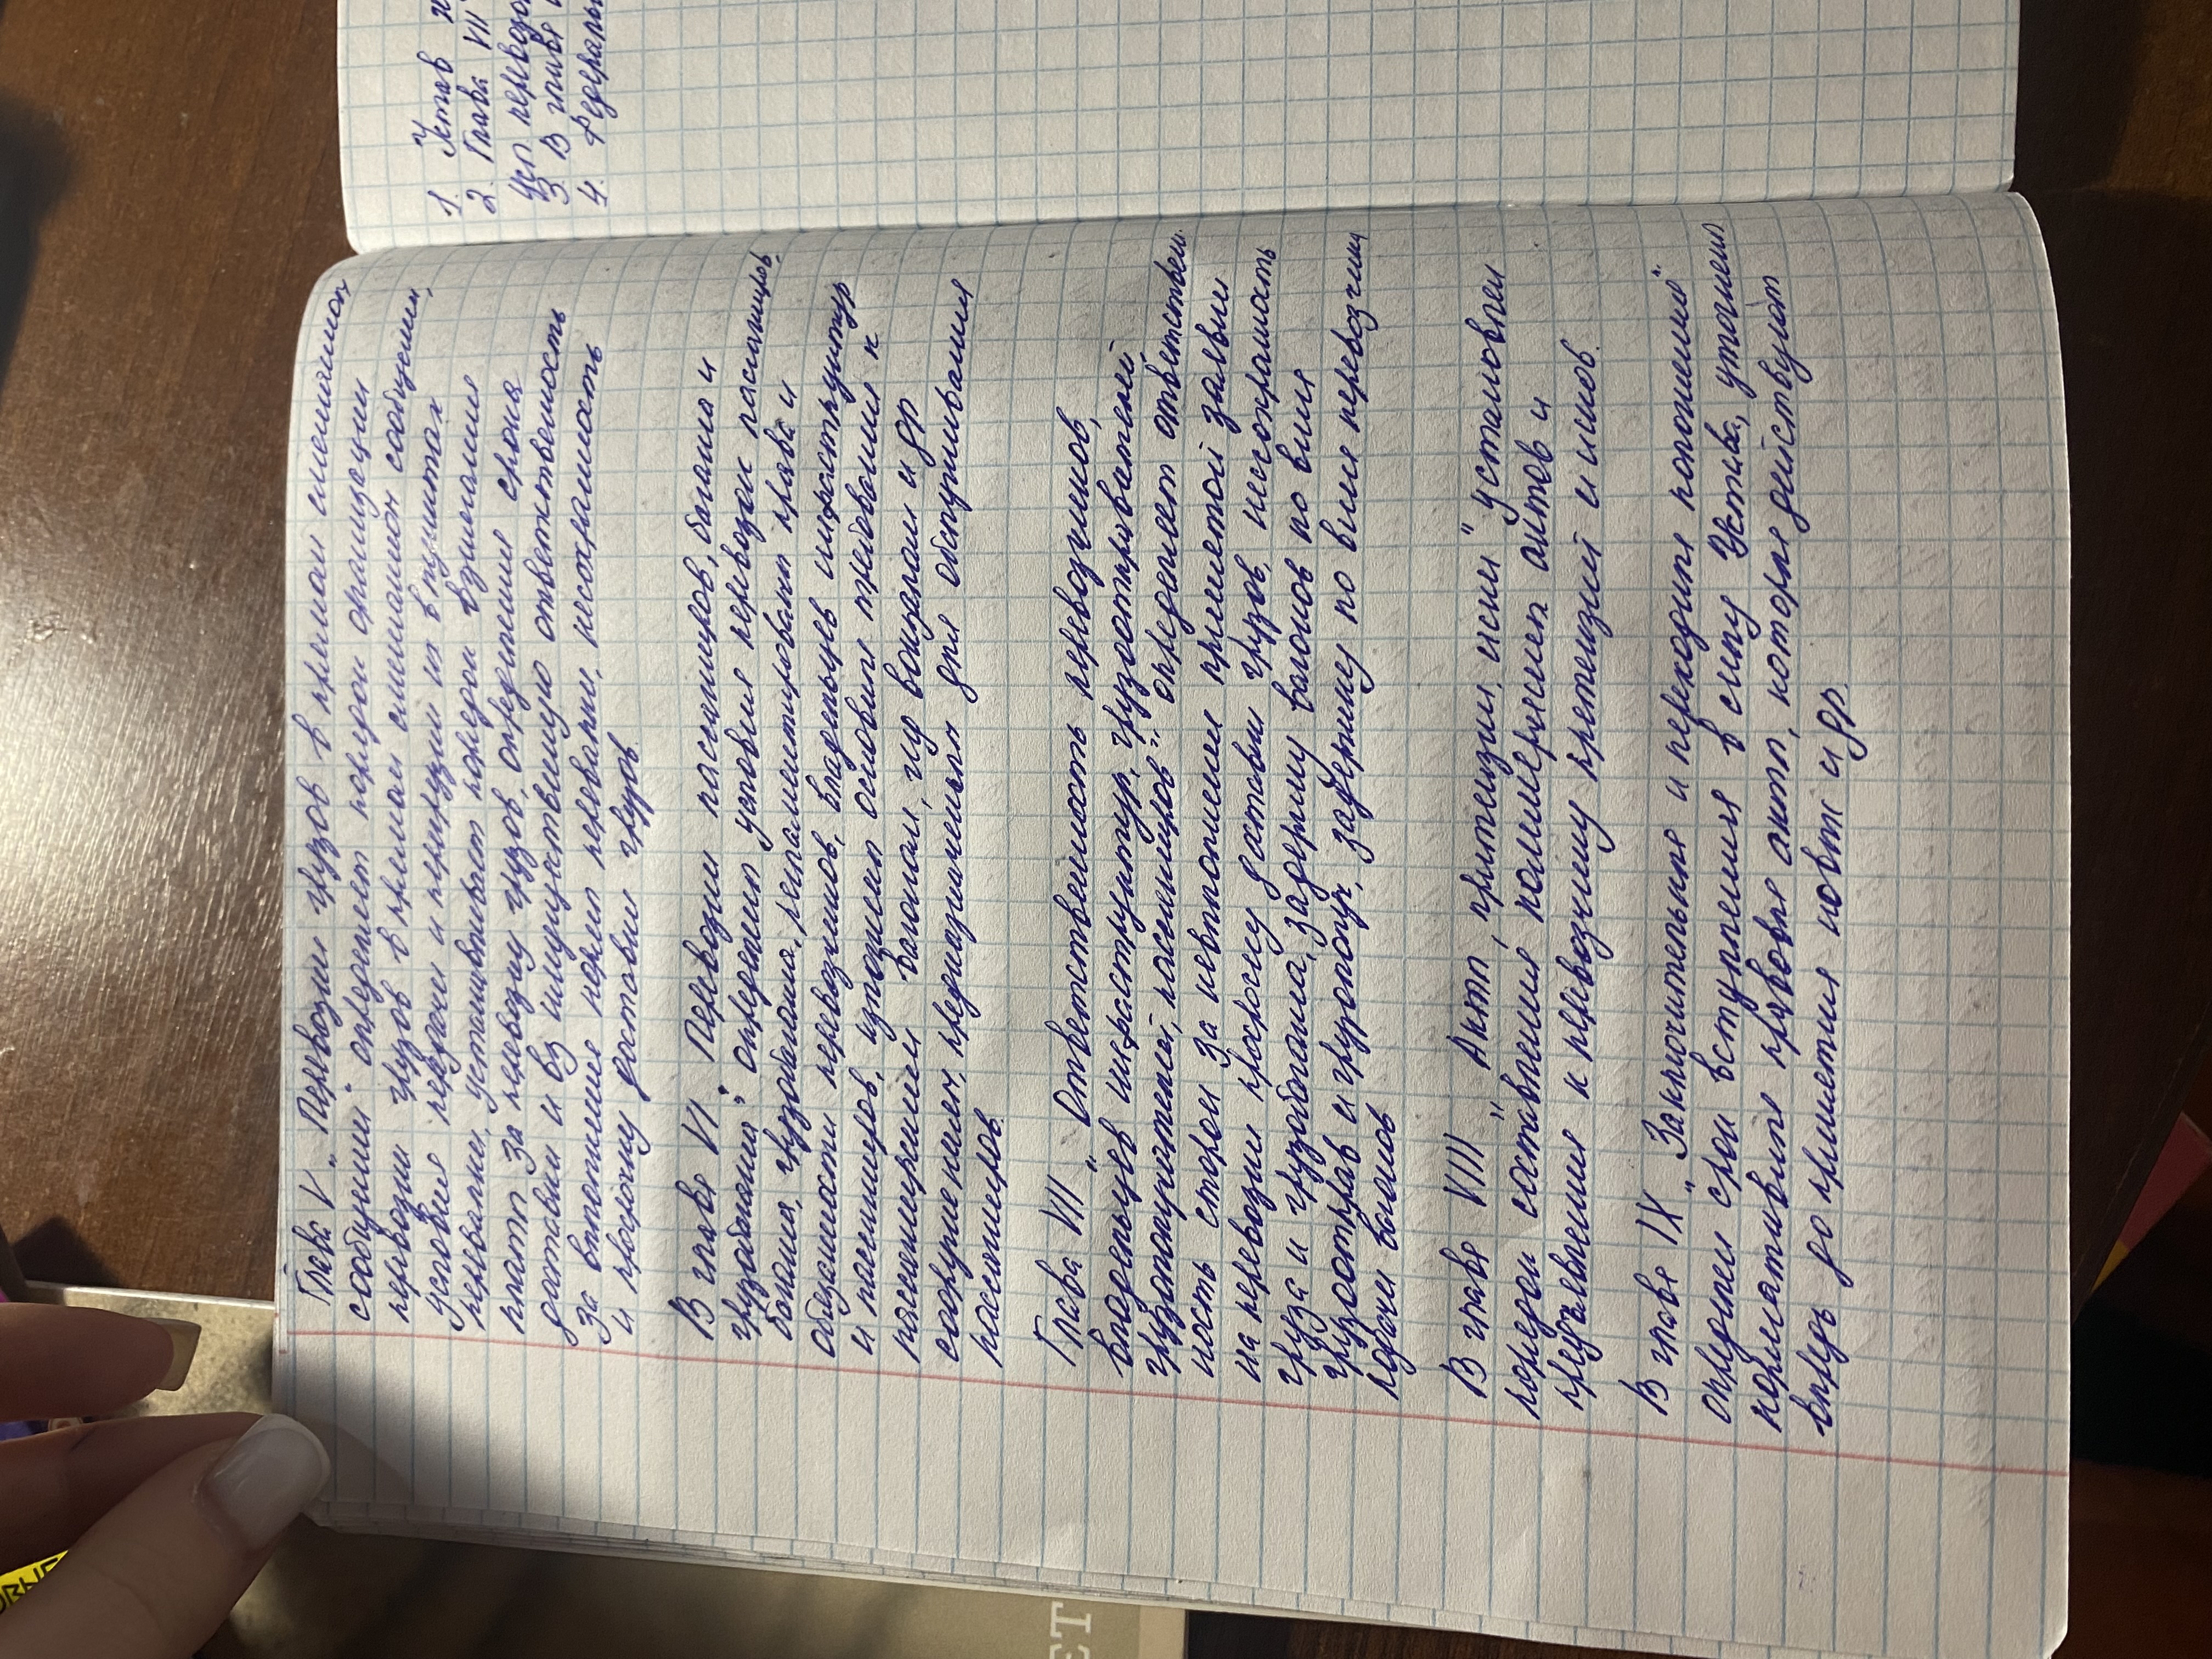 Глава V „Перевозки грузов в прямом смешанном
сообщении" определяет порядок организации
перевозки грузов в прямом смешанном сообщении,
условия передачи и перегрузки их в пунктах
перевалки, устанавливает порядок взимания
платы за перевозку грузов, определения срока
доставки и вз имущественную ответственность
за выполнение нормы перевалки, несохранность
и просрочку доставки грузов
В главе VI „Перевозки пассажиров, багажа и
грузобагажа" определены условия перевозок пассажиров,
багажа, грузобагажа, регламентированы права и
обязанности перевозчиков, владельцев инфраструктур
и пассажиров, изложены основные требования к
пассажирским вагонам, жд вокзалам и др
сооружениям, предназначенным для обслуживания
пассажиров
Глава VII „Ответственность перевозчиков,
владельцев инфраструктур, грузоотправителей,
грузополучателей, пассажиров" определяет ответствен
ность сторон за невыполнение принятой заявки
на перевозки просрочку доставки грузов, несохранность
груза и грузобагажа, задержку вагонов по вине
грузоотправ и грузополуч, задержку по вине перевозчика
подачи вагонов
В главе VIII „Акты, претензии, иски" установлен
порядок составления коммерческих актов и
предъявления к перевозчику претензий и исков.
В главе IX „Заключительные и переходные положения"
определен срок вступления в силу Устава, уточнены
нормативные правовые акты, которые действуют
впредь до принятия новых и др
1. Устав
2. Глава VII
3 В главе
4. Федеральн
ЕТ